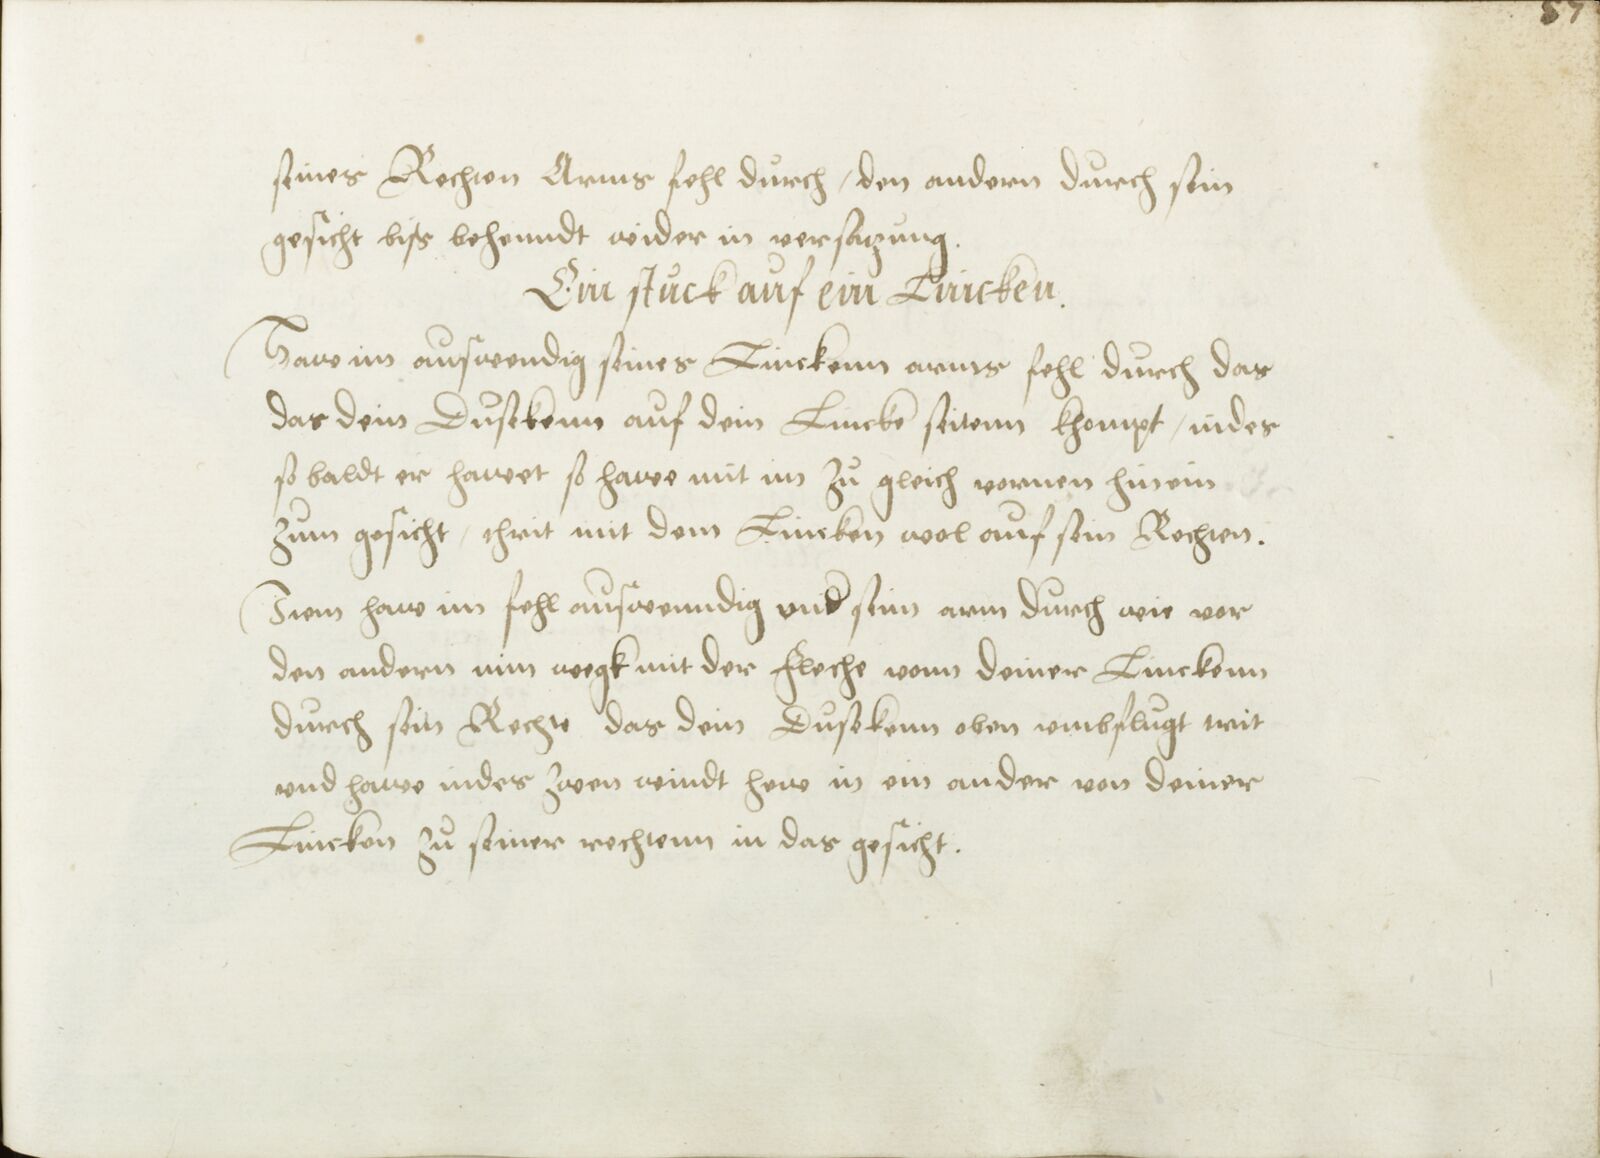 57
seines Rechten Arms fehl durch / den andern durch sein
gesicht biss behenndt wider in versatzung.
Ein stuck auf ein Lincken.
Haw im auswendig seines Linckenn arms fehl durch das
das dein Dusekenn auf dein Lincke seitenn khompt / indes
so baldt er hawet so hawe mit im zu gleich vornen hinein
zum gesicht / thrit mit dem Lincken wol auf sein Rechten.
Item haw im fehl auswenndig vnd seim arm durch wie vor
den andern nim wegk mit der fleche vonn deiner Linckenn
durch sein Rechte das dein Dusekenn oben vmbflugt trit
vnd hawe indes zwen windt hew in ein ander von deiner
Lincken zu seiner rechtenn in das gesicht.